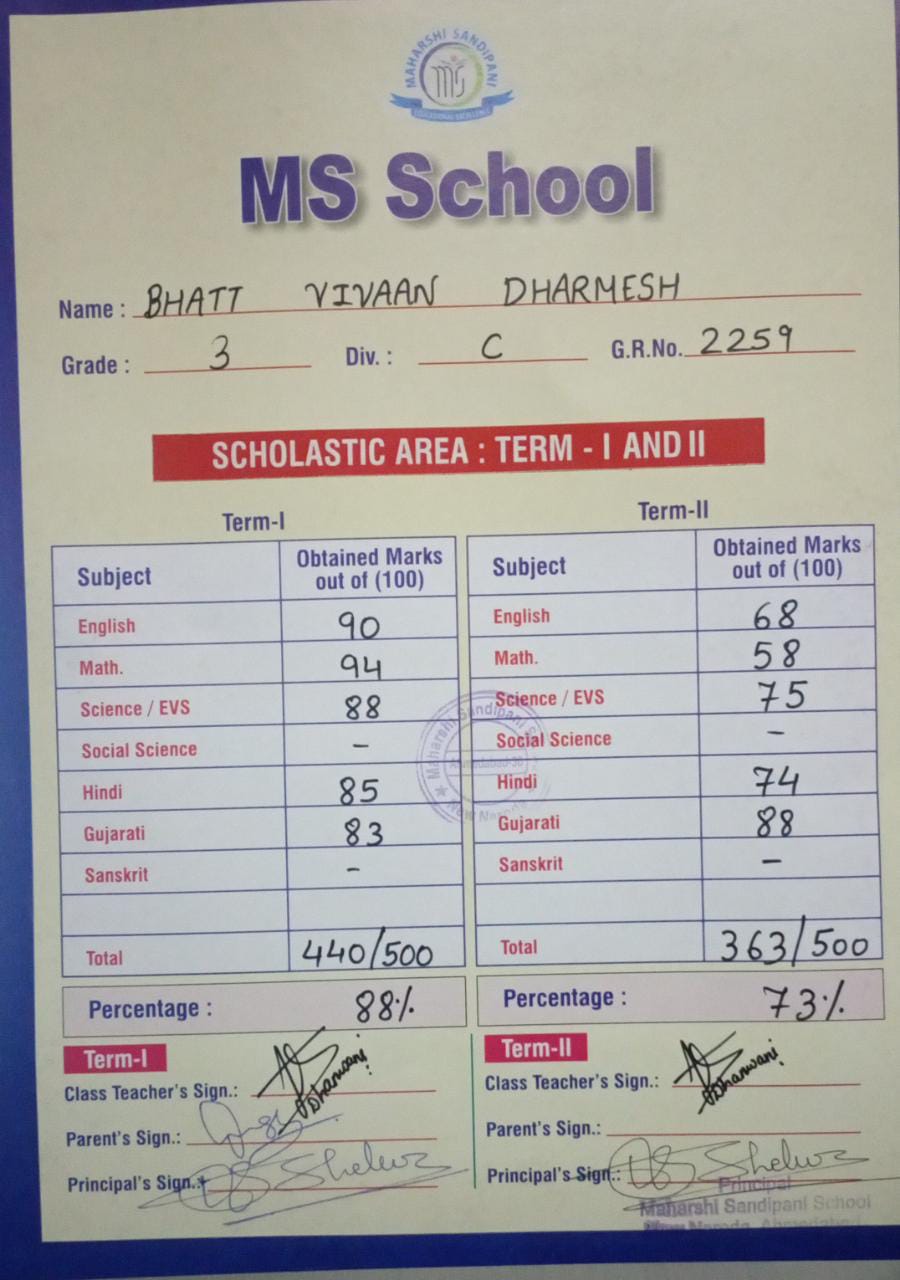 MAHARSHI SANDIPANI
mS
EDUCATIONAL EXCELLENCE
MS School
Name : BHATT VIVAAN DHARMESH
Grade : 3 Div. : C G.R.No. 2259
SCHOLASTIC AREA : TERM - I AND II
Term-I
Subject Obtained Marks out of (100)
English 90
Math. 94
Science / EVS 88
Social Science –
Hindi 85
Gujarati 83
Sanskrit –
Total 440/500
Percentage : 88%
Term-II
Subject Obtained Marks out of (100)
English 68
Math. 58
Science / EVS 75
Social Science –
Hindi 74
Gujarati 88
Sanskrit –
Total 363/500
Percentage : 73%
Maharshi Sandipani
Ahmedabad-30
New Naroda
Term-I
Class Teacher's Sign.: Dhanwani
Parent's Sign.:
Principal's Sign.:
Term-II
Class Teacher's Sign.: Dhanwani
Parent's Sign.:
Principal's Sign.:
Principal
Maharshi Sandipani School
New Naroda, Ahmedabad